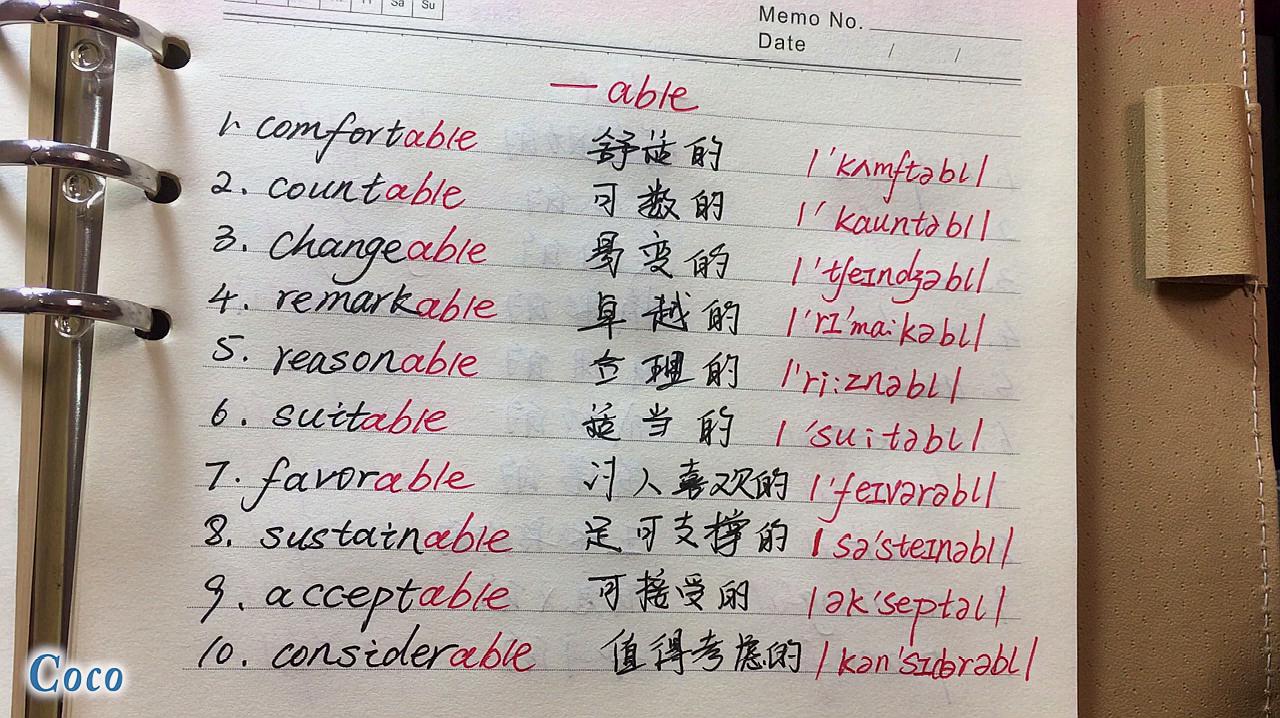 Sa Su
Memo No.
Date / /
— able
1. comfortable 舒适的 /'kʌmftəbl/
2. countable 可数的 /'kauntəbl/
3. changeable 易变的 /'tʃeɪndʒəbl/
4. remarkable 卓越的 /'rɪ'ma:kəbl/
5. reasonable 合理的 /'ri:znəbl/
6. suitable 适当的 /'suitəbl/
7. favorable 讨人喜欢的 /'feɪvərəbl/
8. sustainable 足可支撑的 /sə'steɪnəbl/
9. acceptable 可接受的 /ək'septəl/
10. considerable 值得考虑的 /kən'sɪdərəbl/
Coco